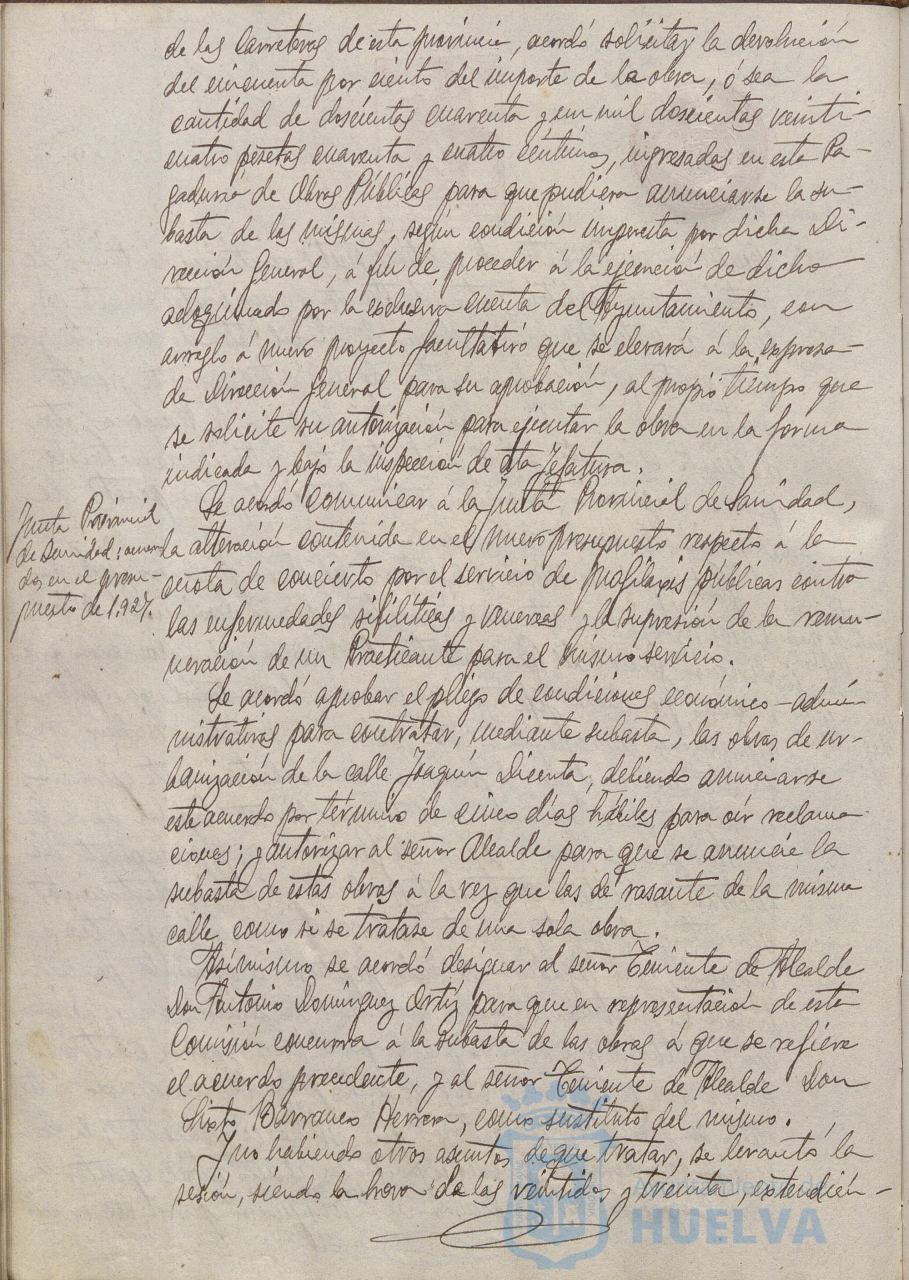 de las carreteras de esta provincia, acordó solicitar la devolución
del cincuenta por ciento del importe de la obra, ó sea la
cantidad de doscientas cuarenta y un mil doscientas veinti-
cuatro pesetas cuarenta y cuatro céntimos, ingresadas en esta Pa-
gaduría de Obras Públicas para que pudiera anunciarse la su-
basta de las mismas, según condición impuesta por dicha Di-
rección General, á fin de proceder á la ejecución de dicho
adoquinado por la exclusiva cuenta del Ayuntamiento, con
arreglo á nuevo proyecto facultativo que se elevará á la expresa-
da Dirección General para su aprobación, al propio tiempo que
se solicite su autorización para ejecutar la obra en la forma
indicada y bajo la inspección de esta Jefatura.
Junta Provincial
de Sanidad; acuer-
dos en el presu-
puesto de 1.927.
Se acordó comunicar á la Junta Provincial de Sanidad,
la alteración contenida en el nuevo presupuesto respecto á la
cuota de concierto por el servicio de profilaxis públicas contra
las enfermedades sifilíticas y venereas y la supresión de la remu-
neración de un Practicante para el mismo servicio.
Se acordó aprobar el pliego de condiciones económico-admi-
nistrativas para contratar, mediante subasta, las obras de ur-
banización de la calle Joaquín Dicenta, debiendo anunciarse
este acuerdo por término de cinco días hábiles para oir reclama-
ciones; y autorizar al señor Alcalde para que se anuncie la
subasta de estas obras á la vez que las de rasante de la misma
calle como si se tratase de una sola obra.
Asimismo se acordó designar al señor Teniente de Alcalde
Don Antonio Domínguez Ortíz para que en representación de esta
Comisión concurra á la subasta de las obras á que se refiere
el acuerdo precedente, y al señor Teniente de Alcalde Don
Sixto Barranco Herrera, como sustituto del mismo.
Y no habiendo otros asuntos de que tratar, se levantó la
sesión, siendo la hora de las veintidos y treinta, extendién-
Ayuntamiento de
HUELVA